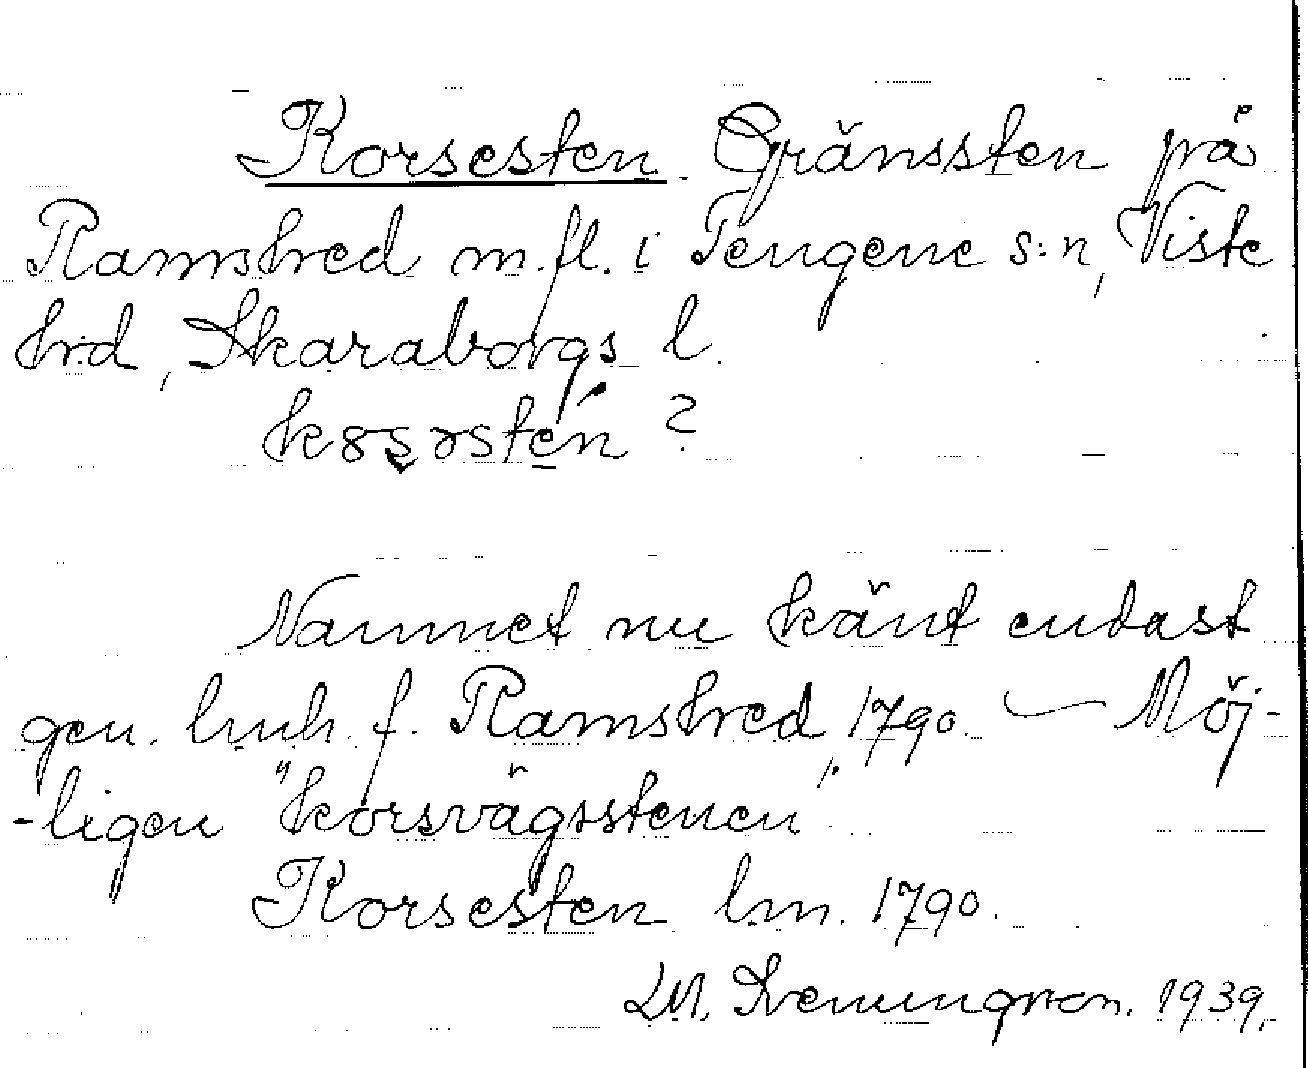 Korsesten. Gränssten på
Ramstved m.fl. i Tengene s:n, Viste
hrd, Skaraborgs l.
Namnet nu känt endast
gen. lmh. f. Ramstved, 1790. – Möj-
-ligen "korsvägsstenen".
Korsesten lm. 1790.
1939.